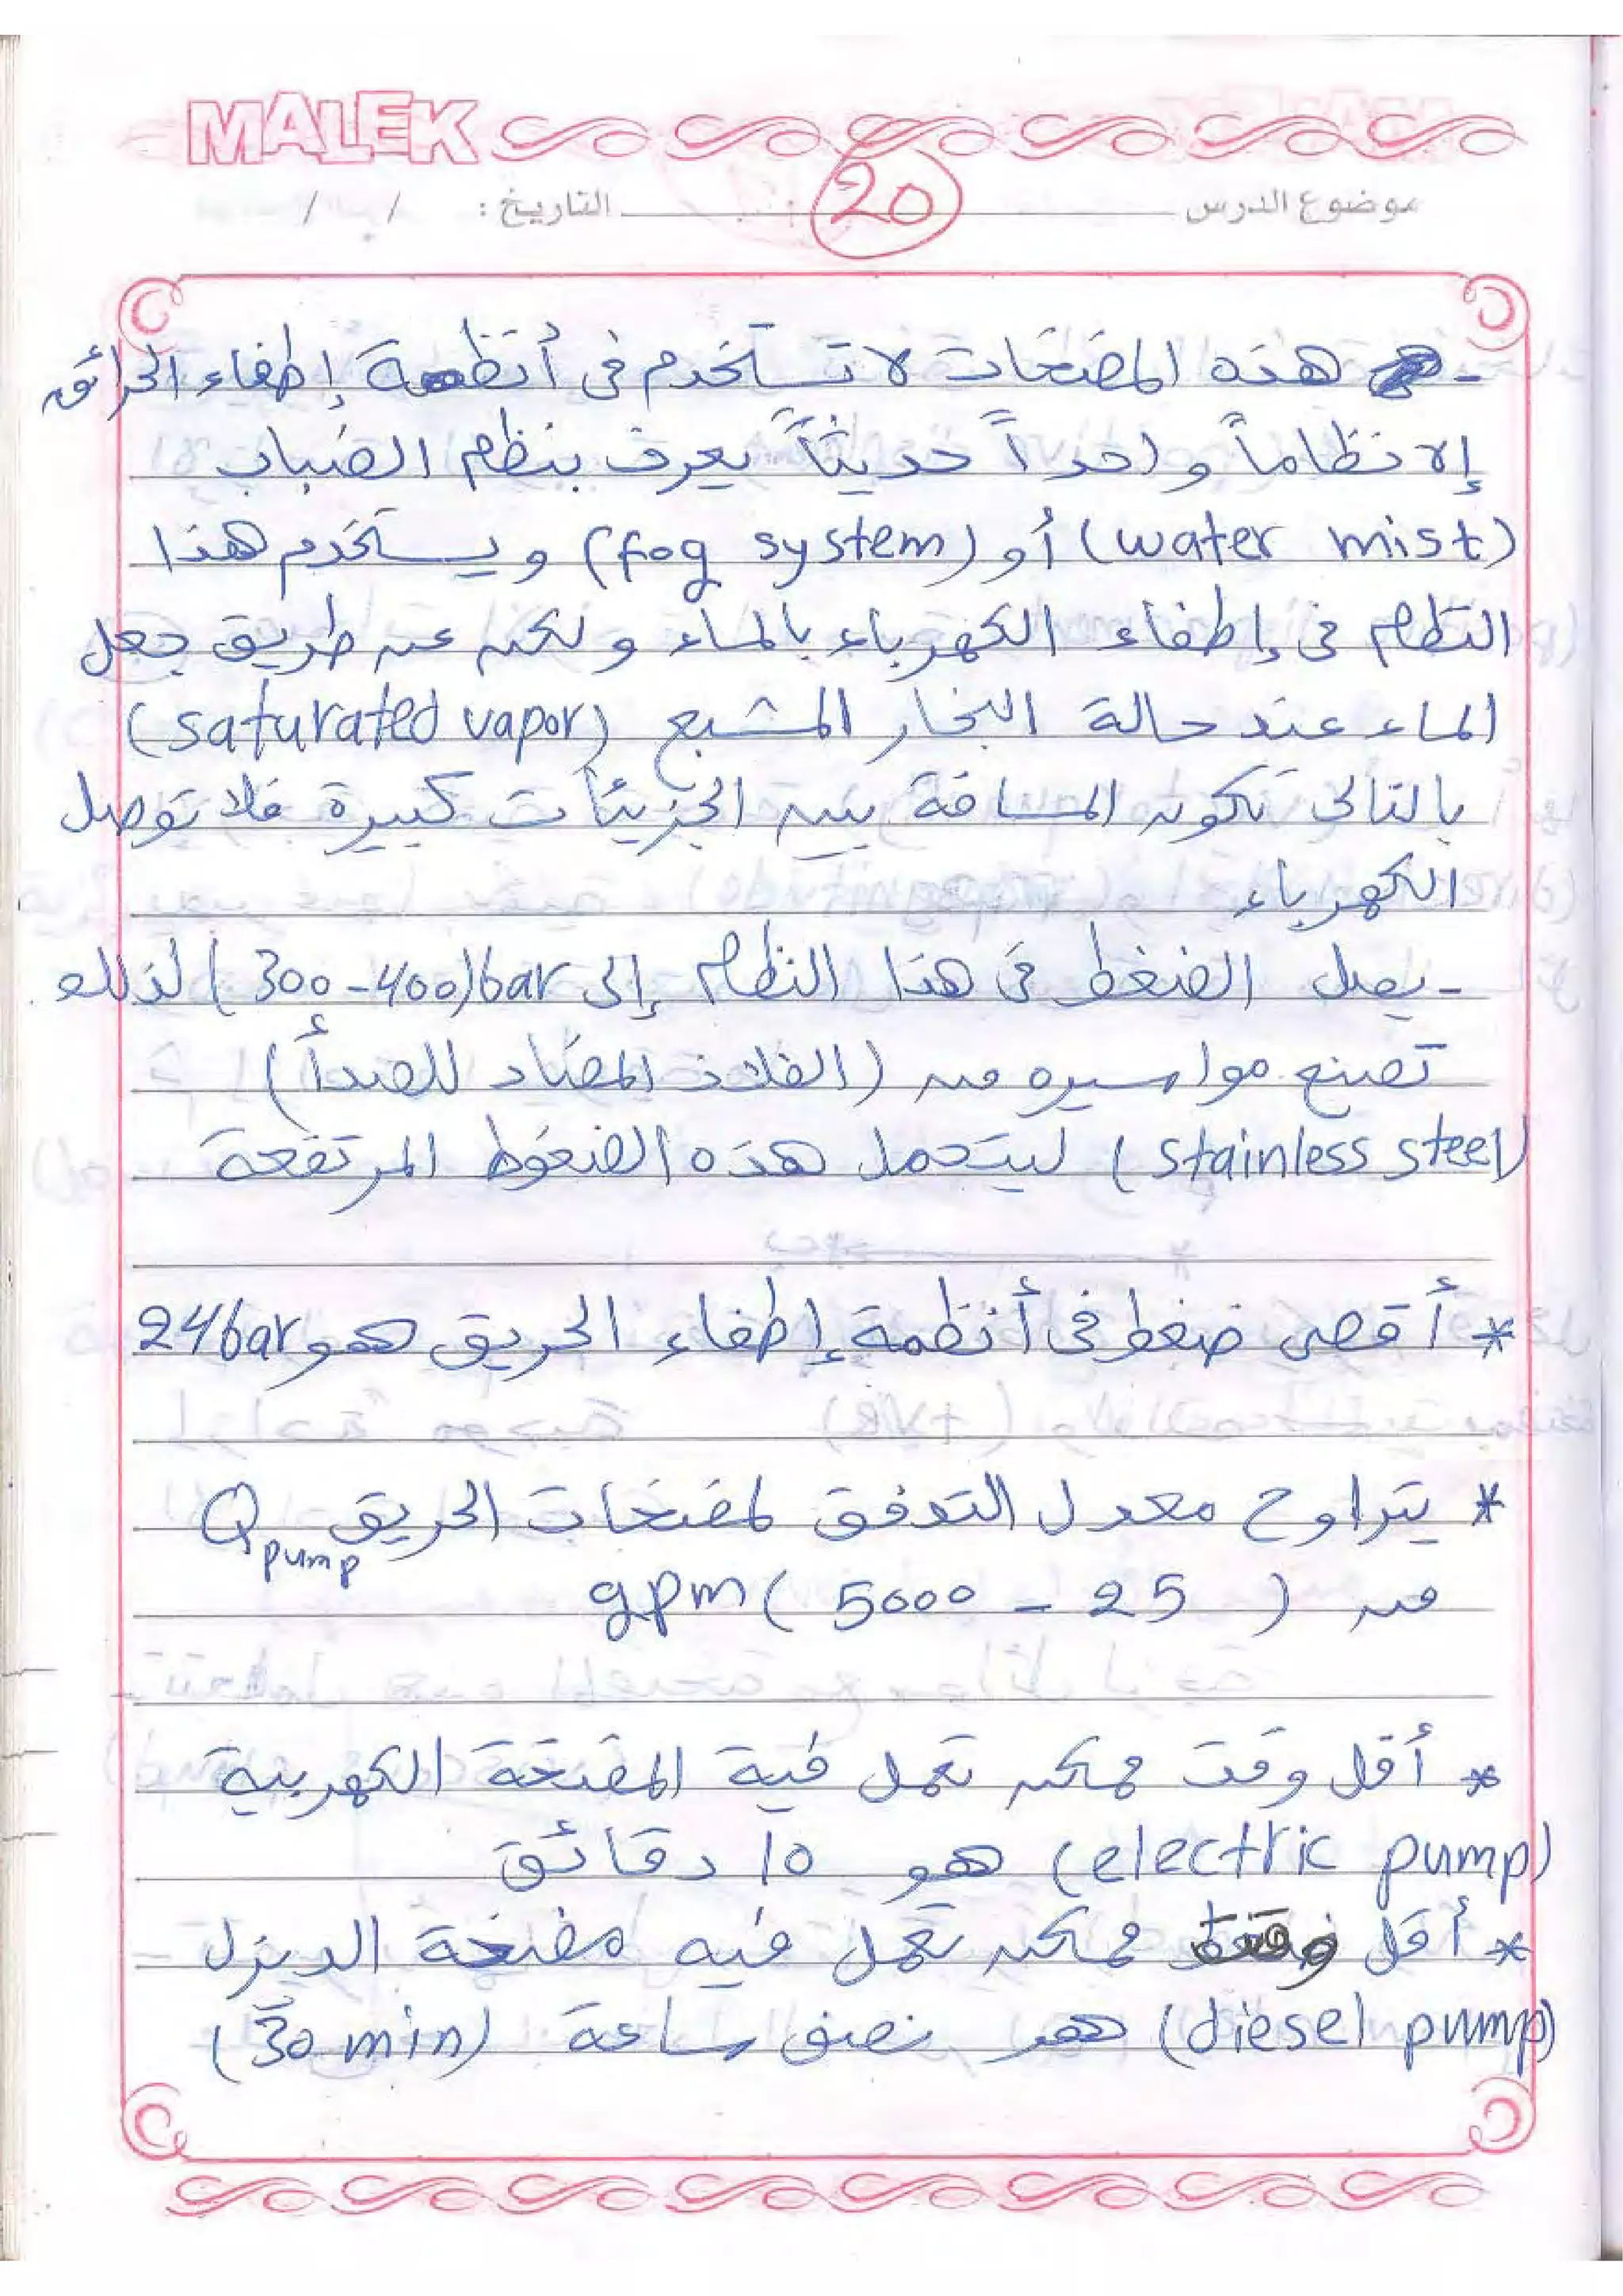 MALEK
موضوع الدرس 20 التاريخ : / /
- هذه المضخات لا تستخدم فى أنظمة إطفاء الحرائق
إلا نظاماً واحداً حديثاً يعرف بنظم الضباب
(water mist) أو (fog system) ويستخدم هذا
النظام فى إطفاء الكهرباء بالماء ولكن عن طريق جعل
الماء عند حالة البخار المشبع (saturated vapor)
بالتالى تكون المسافة بين الجزيئات كبيرة فلا توصل
الكهرباء
- يصل الضغط فى هذا النظام إلى (300-400)bar لذلك
تصنع مواسيره من (الفلاذ المضاد للصدأ)
(stainless steel) ليتحمل هذه الضغوط المرتفعة
* أقصى ضغط فى أنظمة إطفاء الحريق هو 24bar
* يتراوح معدل التدفق لمضخات الحريق Qpump
من (25 - 5000) gpm
* أقل وقت ممكن تعمل فية المضخة الكهربية
(electric pump) هو 10 دقائق
* أقل وقت ممكن تعمل فيه مضخة الديزل
(diesel pump) هو نصف ساعة (30 min)